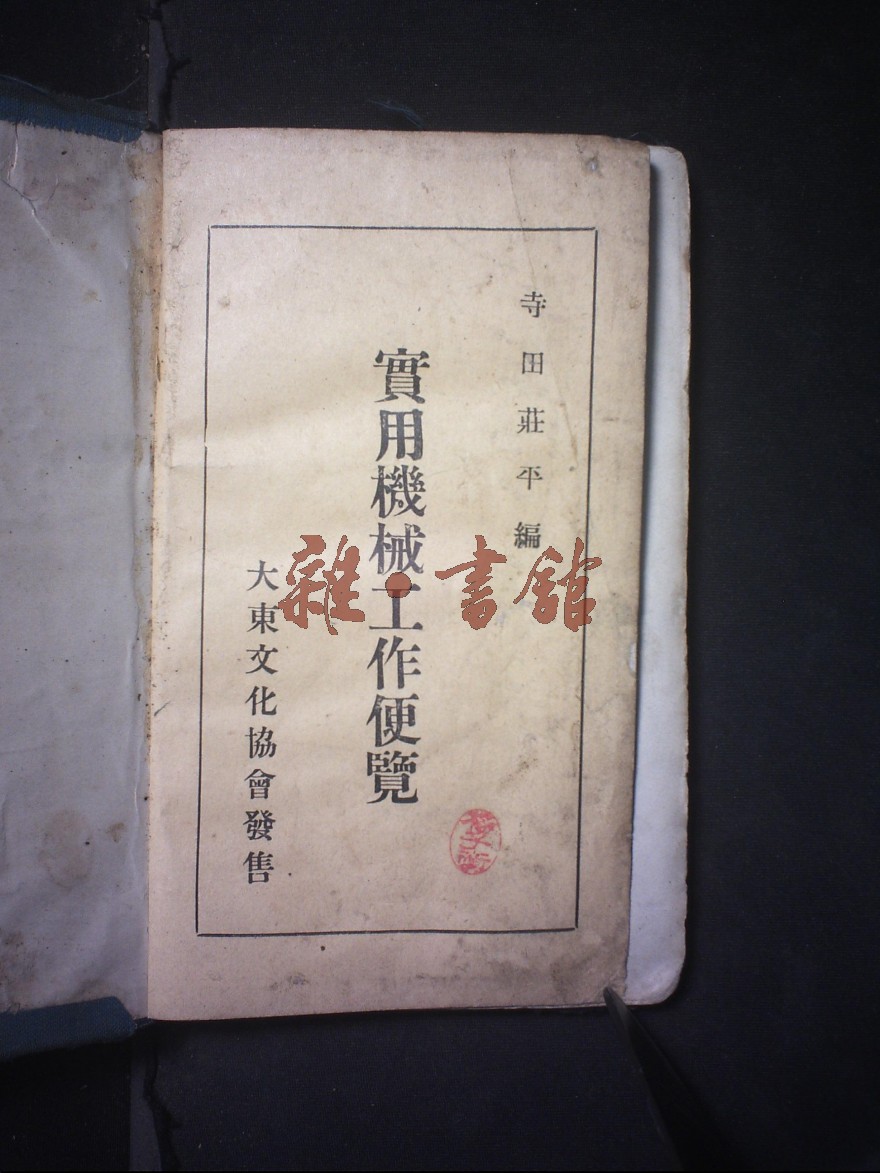 寺田莊平編
實用機械工作便覽
大東文化協會發售
雜·書館